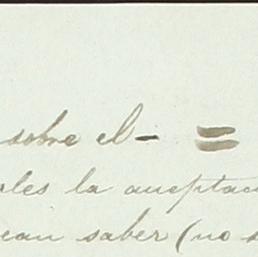 sobre el- =
ales la aceptac
ean saber (no s